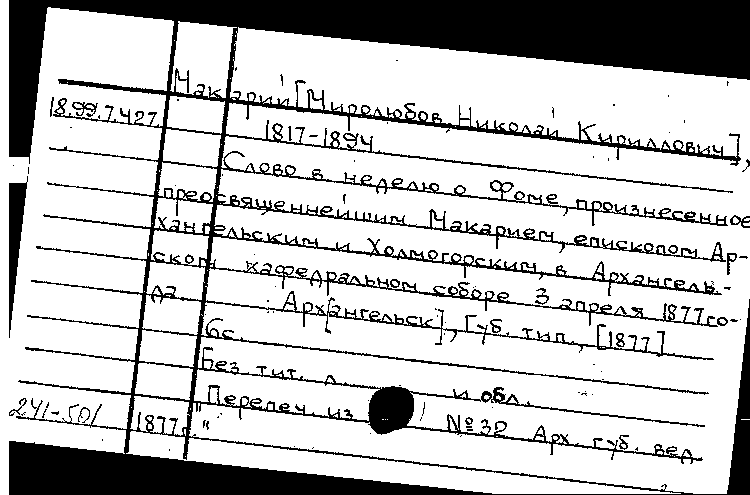 Макарий [Миролюбов, Николай Кириллович],
18.99.7.427
1817-1894.
Слово в неделю о Фоме, произнесенное
преосвященнейшим Макарием, епископом Ар-
хангельским и Холмогорским, в Архангель-
ском кафедральном соборе 3 апреля 1877го-
да. Арх[ангельск], Губ. тип., [1877].
6с.
Без тит. л. и обл.
"Перепеч. из № 32 Арх. губ. вед.
241-501 1877г."